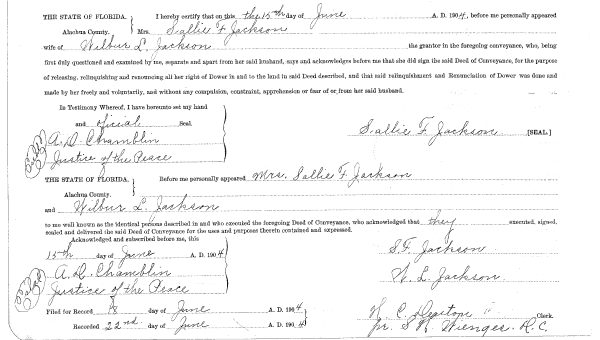 THE STATE OF FLORIDA. I hereby certify that on this the 15th day of June A. D. 1904, before me personally appeared
Alachua County. Mrs. Sallie F Jackson
wife of Wilbur L. Jackson the grantor in the foregoing conveyance, who, being
first duly questioned and examined by me, separate and apart from her said husband, says and acknowledges before me that she did sign the said Deed of Conveyance, for the purpose
of releasing, relinquishing and renouncing all her right of Dower in and to the land in said Deed described, and that said relinquishment and Renunciation of Dower was done and
made by her freely and voluntarily, and without any compulsion, constraint, apprehension or fear of or from her said husband.
In Testimony Whereof, I have hereunto set my hand
and official Seal.
A. D. Chamblin Sallie F. Jackson [SEAL.]
Justice of the Peace
THE STATE OF FLORIDA. Before me personally appeared Mrs. Sallie F Jackson
Alachua County.
and Wilbur L. Jackson
to me well known as the identical persons described in and who executed the foregoing Deed of Conveyance, who acknowledged that they executed, signed,
sealed and delivered the said Deed of Conveyance for the uses and purposes therein contained and expressed.
Acknowledged and subscribed before me, this
15th day of June A. D. 1904 S.F. Jackson
A. D. Chamblin W. L. Jackson
Justice of the Peace
Filed for Record 18 day of June A. D. 1904 Clerk.
Recorded 22nd day of June A. D. 1904 D.C.